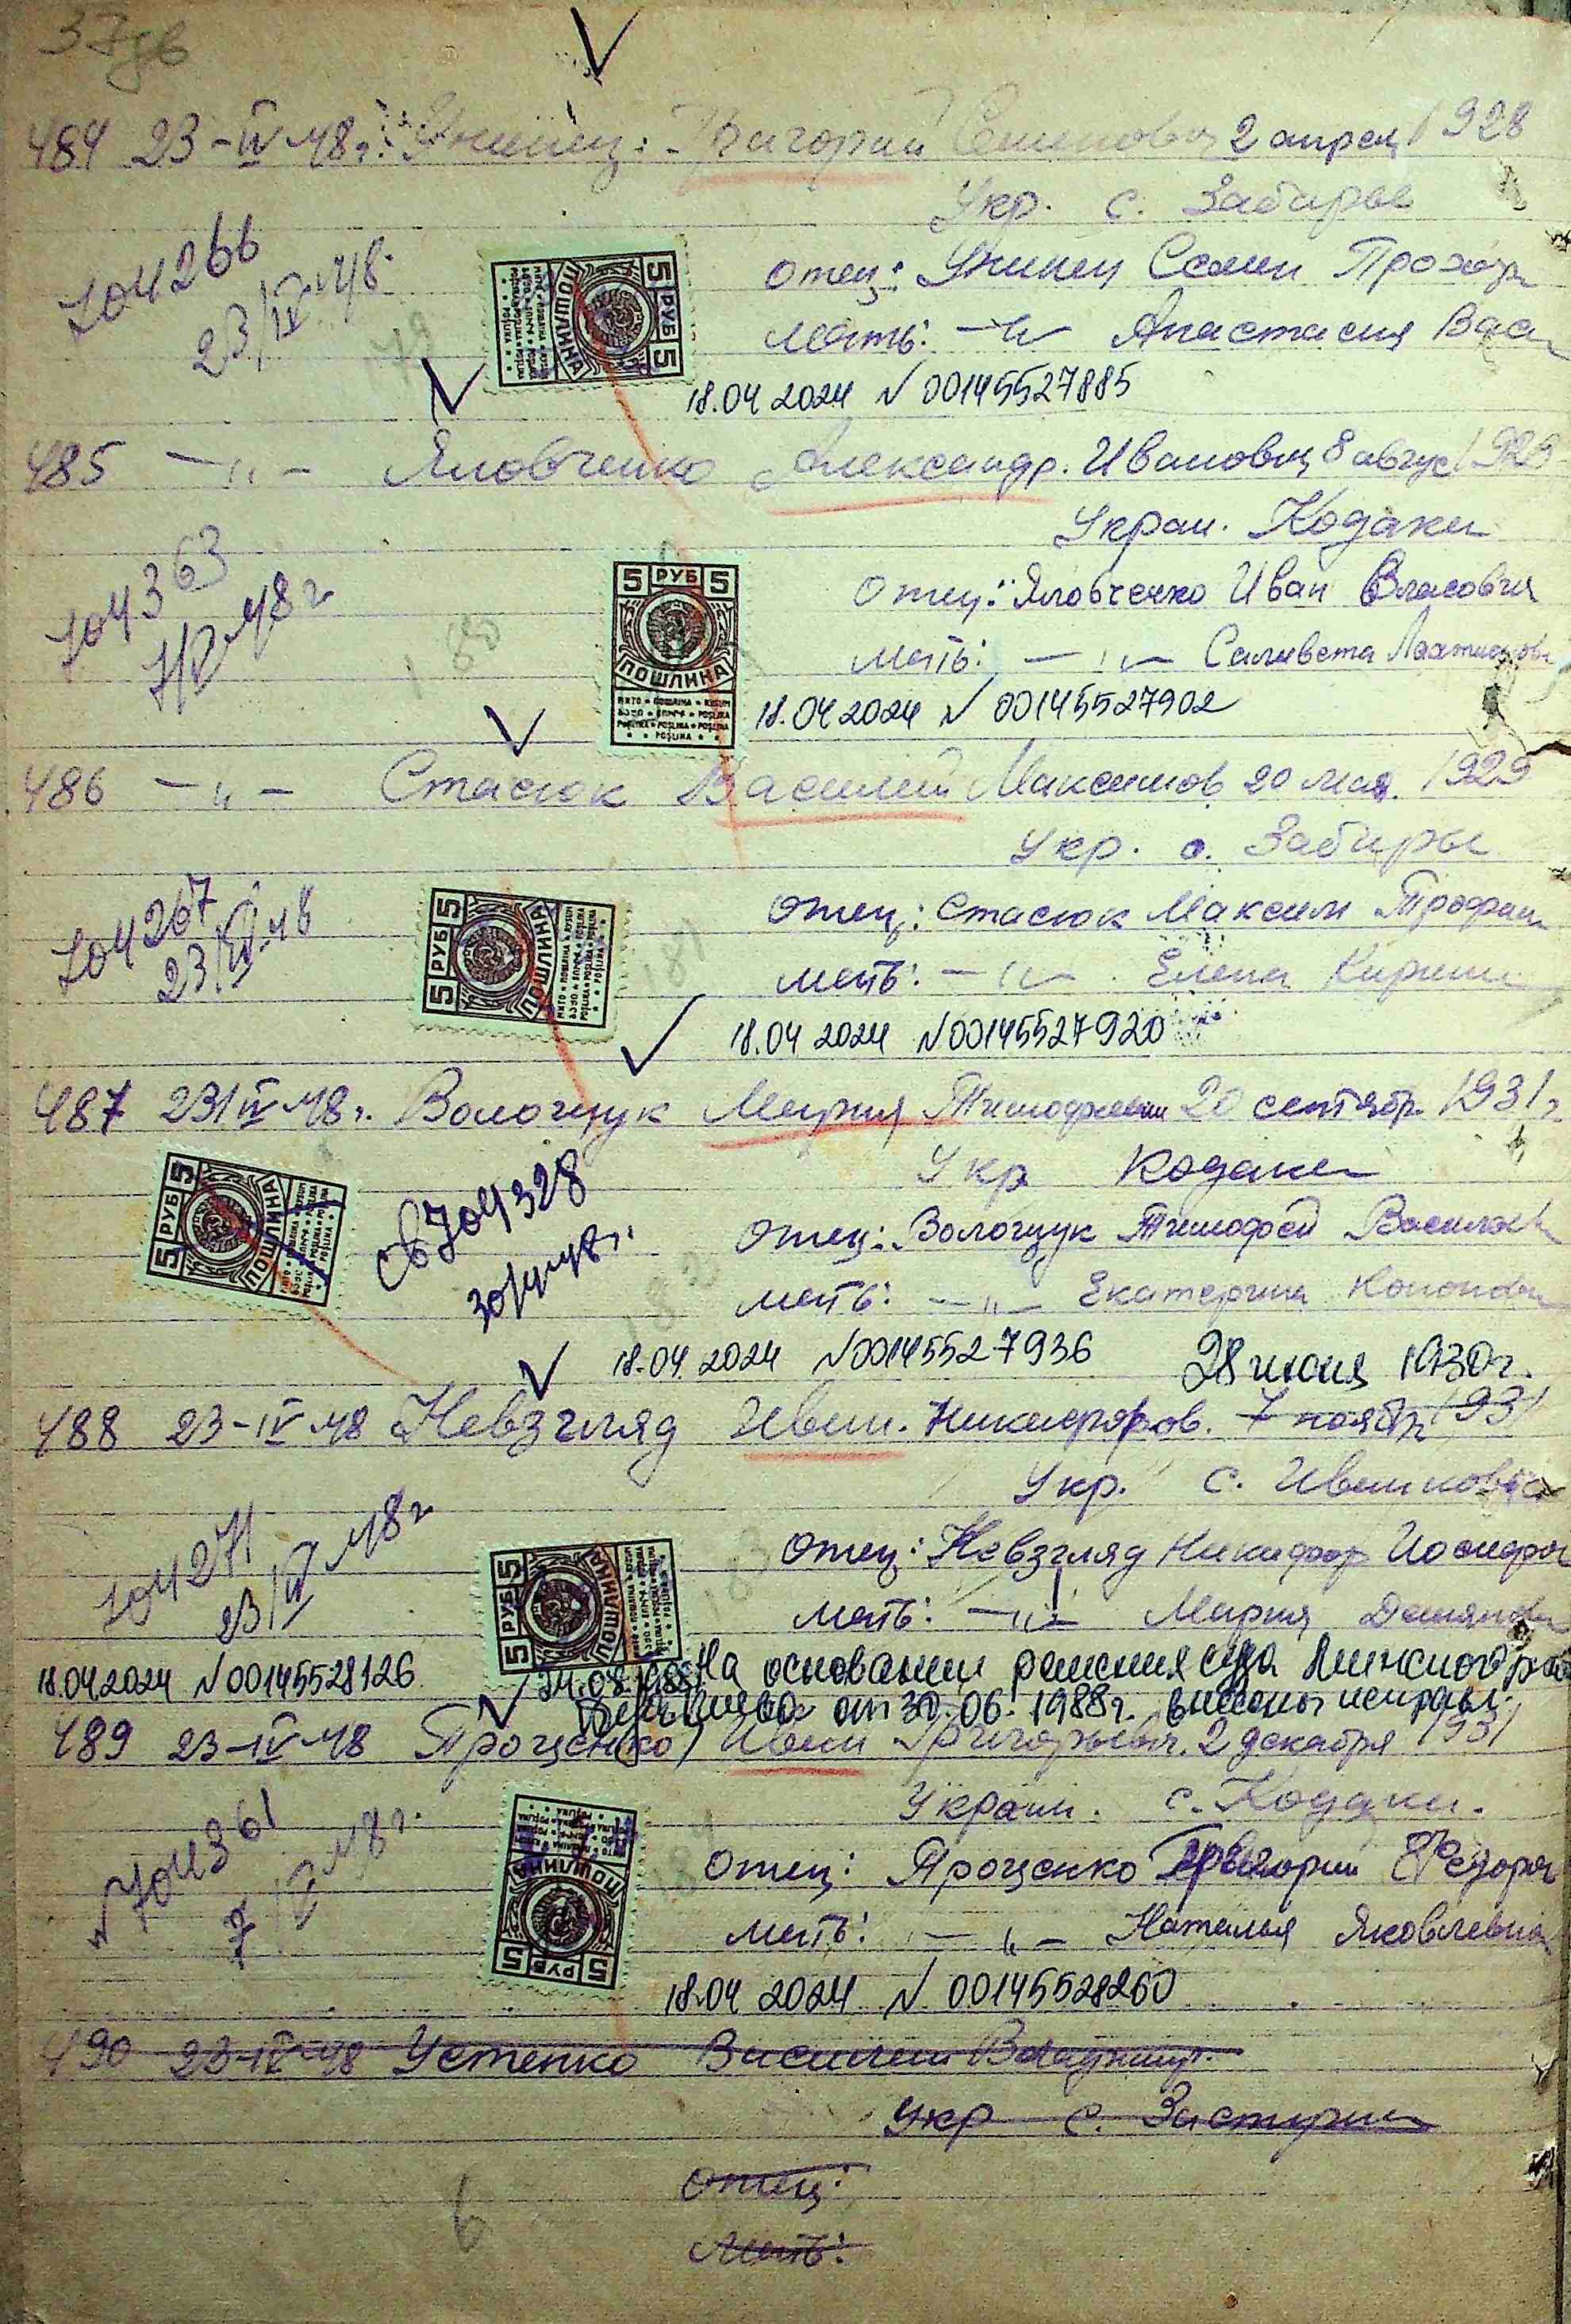 37зв
484 23-IV 48г. Григорий Семенович 2 апрел 1928
Укр. с. Забирье
704266
23/IV 48.
5 РУБ 5
ПОШЛИНА
Отец: Семен Прохор
Мать: —„— Анастасия Вас
18.04 2024 N 00145527885
485 —„— Яловченко Александр. Иванович 8 авгус 1928
Украи. Кодаки
704363
7/V 48г
5 РУБ 5
ПОШЛИНА
Отец: Яловченко Иван Власович
Мать: —„— Саливета
18.04 2024 N 00145527902
486 —„— Стасюк Василий Максимов 20 мая. 1929
Укр. с. Забирье
704267
23/IV-48
5 РУБ 5
ПОШЛИНА
Отец: Стасюк Максим Трофим
Мать: —„— Елена Кирил
18.04 2024 N 00145527920
487 23/IV 48г. Вологщук Мария Тимофеевн 20 сентябр. 1931г.
Укр Кодаки
5 РУБ 5
ПОШЛИНА
св 704328
30/IV-48г.
Отец: Вологщук Тимофей Василев
Мать: —„— Екатерина Кононовн
18.04. 2024 N 00145527936 28 июня 1930г.
488 23-IV 48 Невзгляд Иван. Никифоров. 7 ноябр 1931
Укр. с. Ивановка
704271
23/IV 48г
5 РУБ 5
ПОШЛИНА
Отец: Невзгляд Никифор Иосифов
Мать: —„— Мария Демянов
18.04.2024 N 00145528126 24.08.1988 На основании решения суда Ленинского р-на
от 30.06.1988г. внесены исправл.
489 23-IV 48 Проценко Иван Григорьевич. 2 декабря 1931
Украин. с. Кодаки.
704361
7/V 48г.
5 РУБ 5
ПОШЛИНА
Отец: Проценко Григорий Федоро
Мать: —„— Наталья Яковлевна
18.04 2024 N 00145528260
490 23-IV-48 Устенко Василий Владимир.
Укр с. Застугна
Отец:
Мать:
6